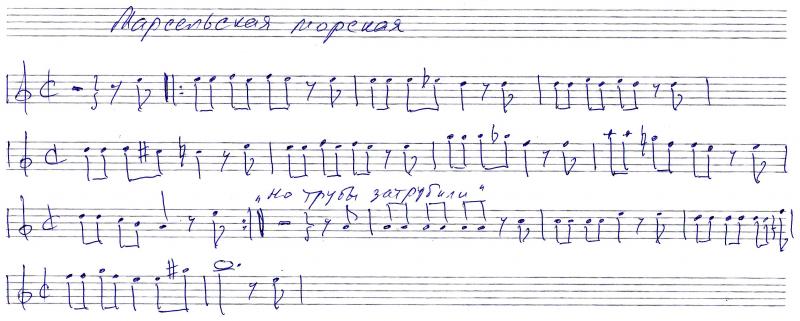 Марсельская морская
„Но трубы затрубили"